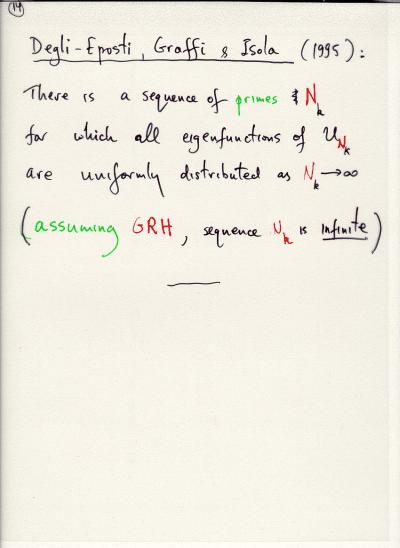 14
Degli-Eposti, Graffi & Isola (1995):
There is a sequence of primes N_k
for which all eigenfunctions of U_{N_k}
are uniformly distributed as N_k → ∞
(assuming GRH, sequence N_k is infinite)